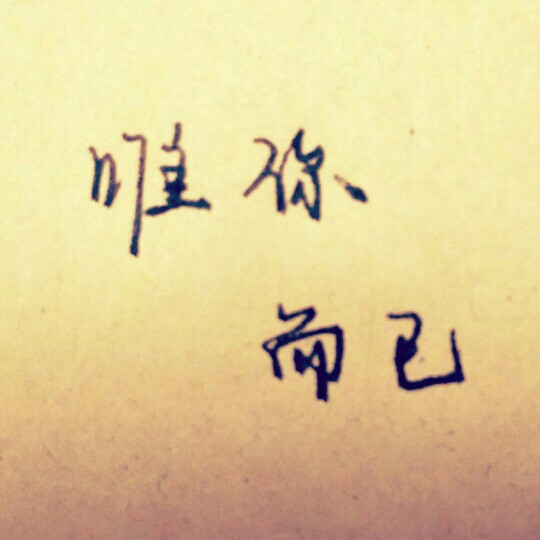 唯你
而已